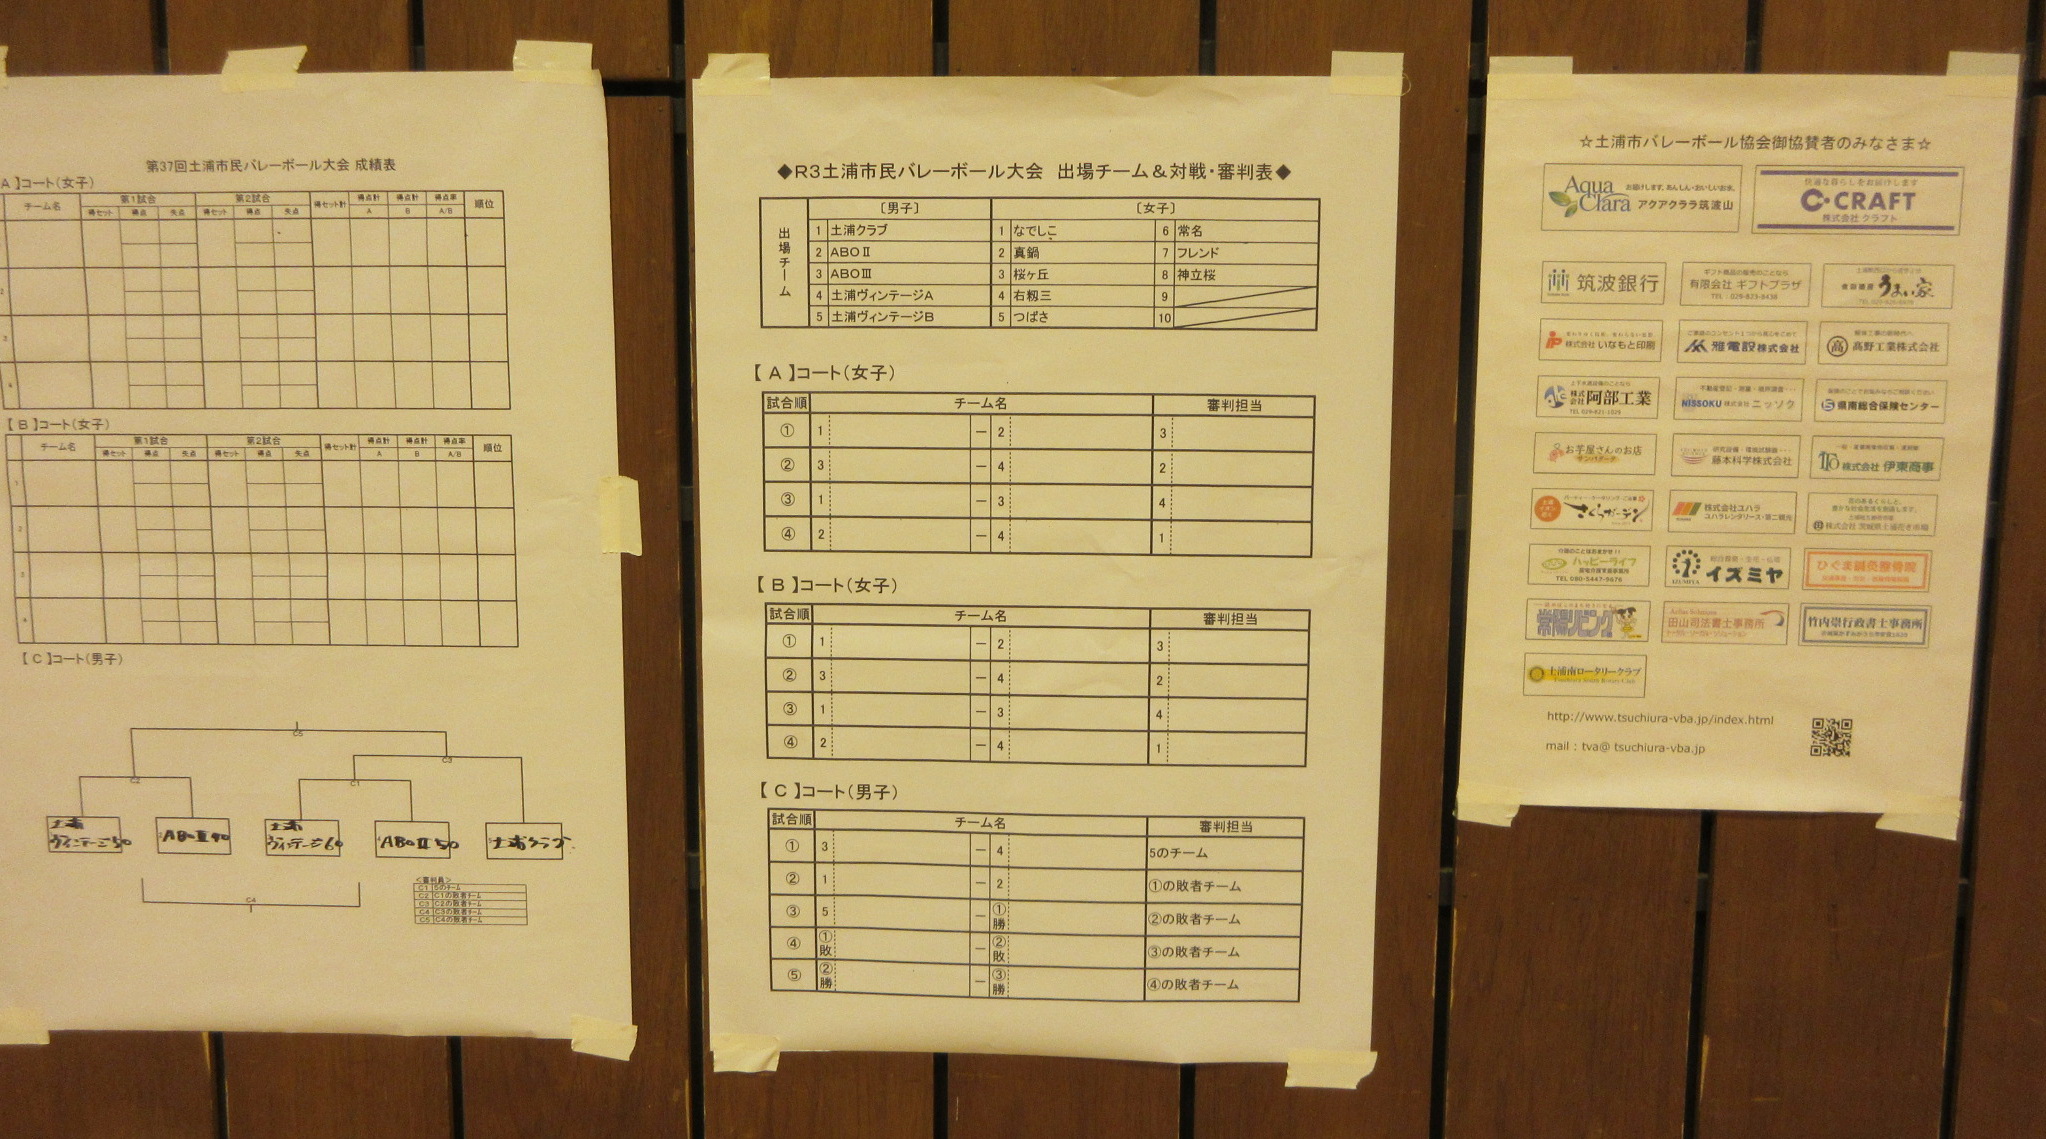 第37回土浦市民バレーボール大会 成績表
A】コート(女子)
チーム名 第1試合 第2試合 得セット計 得点計 得点計 得点率 順位
得セット 得点 失点 得セット 得点 失点 A B A/B
【B】コート(女子)
チーム名 第1試合 第2試合 得セット計 得点計 得点計 得点率 順位
得セット 得点 失点 得セット 得点 失点 A B A/B
1
2
3
4
【C】コート(男子)
C5
C3
C2 C1
土浦ヴィンテージ50
ABOⅢ40
土浦ヴィンテージ60
ABOⅡ50
土浦クラブ
C4
<審判員>
C1 5のチーム
C2 C1の敗者チーム
C3 C2の敗者チーム
C4 C3の敗者チーム
C5 C4の敗者チーム
◆R3土浦市民バレーボール大会 出場チーム&対戦・審判表◆
出場チーム
〔男子〕 〔女子〕
1 土浦クラブ 1 なでしこ 6 常名
2 ABOⅡ 2 真鍋 7 フレンド
3 ABOⅢ 3 桜ヶ丘 8 神立桜
4 土浦ヴィンテージA 4 右籾三 9
5 土浦ヴィンテージB 5 つばさ 10
【A】コート(女子)
試合順 チーム名 審判担当
① 1 － 2 3
② 3 － 4 2
③ 1 － 3 4
④ 2 － 4 1
【B】コート(女子)
試合順 チーム名 審判担当
① 1 － 2 3
② 3 － 4 2
③ 1 － 3 4
④ 2 － 4 1
【C】コート(男子)
試合順 チーム名 審判担当
① 3 － 4 5のチーム
② 1 － 2 ①の敗者チーム
③ 5 － ①勝 ②の敗者チーム
④ ①敗 － ②敗 ③の敗者チーム
⑤ ②勝 － ③勝 ④の敗者チーム
☆土浦市バレーボール協会御協賛者のみなさま☆
Aqua Clara
お届けします。あんしん・おいしいお水。
アクアクララ筑波山
快適な暮らしをお届けします
C・CRAFT
株式会社 クラフト
筑波銀行
ギフト商品の販売のことなら
有限会社 ギフトプラザ
TEL:029-823-9438
うまい家
株式会社 いなもと印刷
雅電設株式会社
髙野工業株式会社
上下水道設備のことなら
株式会社 阿部工業
TEL 029-821-1028
不動産登記・測量・境界調査・・・
NISSOKU 株式会社 ニッソク
県南総合保険センター
お芋屋さんのお店
藤本科学株式会社
株式会社 伊東商事
さくらガーデン
株式会社ユハラ
ユハラレンタリース・第二観光
花のあるくらしと、
豊かな社会生活を創造します。
株式会社 茨城県土浦花き市場
介護のことはおまかせ!!
ハッピーライフ
TEL 080-5447-9676
IZUMIYA
イズミヤ
ひぐま鍼灸整骨院
常陽リビング
田山司法書士事務所
竹内崇行政書士事務所
土浦南ロータリークラブ
Tsuchiura South Rotary Club
http://www.tsuchiura-vba.jp/index.html
mail : tva@ tsuchiura-vba.jp